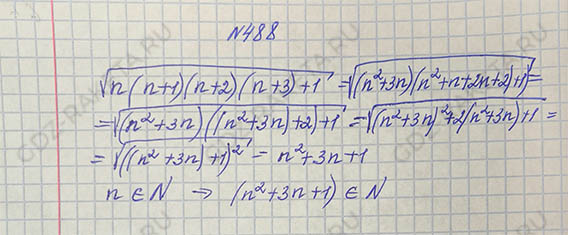 №488
√(n(n+1)(n+2)(n+3)+1) = √((n²+3n)(n²+n+2n+2)+1) =
= √((n²+3n)((n²+3n)+2)+1) = √((n²+3n)²+2(n²+3n)+1) =
= √(((n²+3n)+1)²) = n²+3n+1
n ∈ N → (n²+3n+1) ∈ N
GDZ-RAKETA.RU